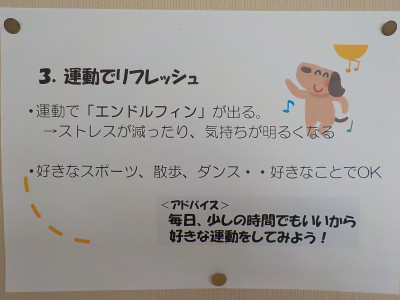 3. 運動でリフレッシュ
・運動で「エンドルフィン」が出る。
→ストレスが減ったり、気持ちが明るくなる
・好きなスポーツ、散歩、ダンス・・好きなことでOK
<アドバイス>
毎日、少しの時間でもいいから
好きな運動をしてみよう！